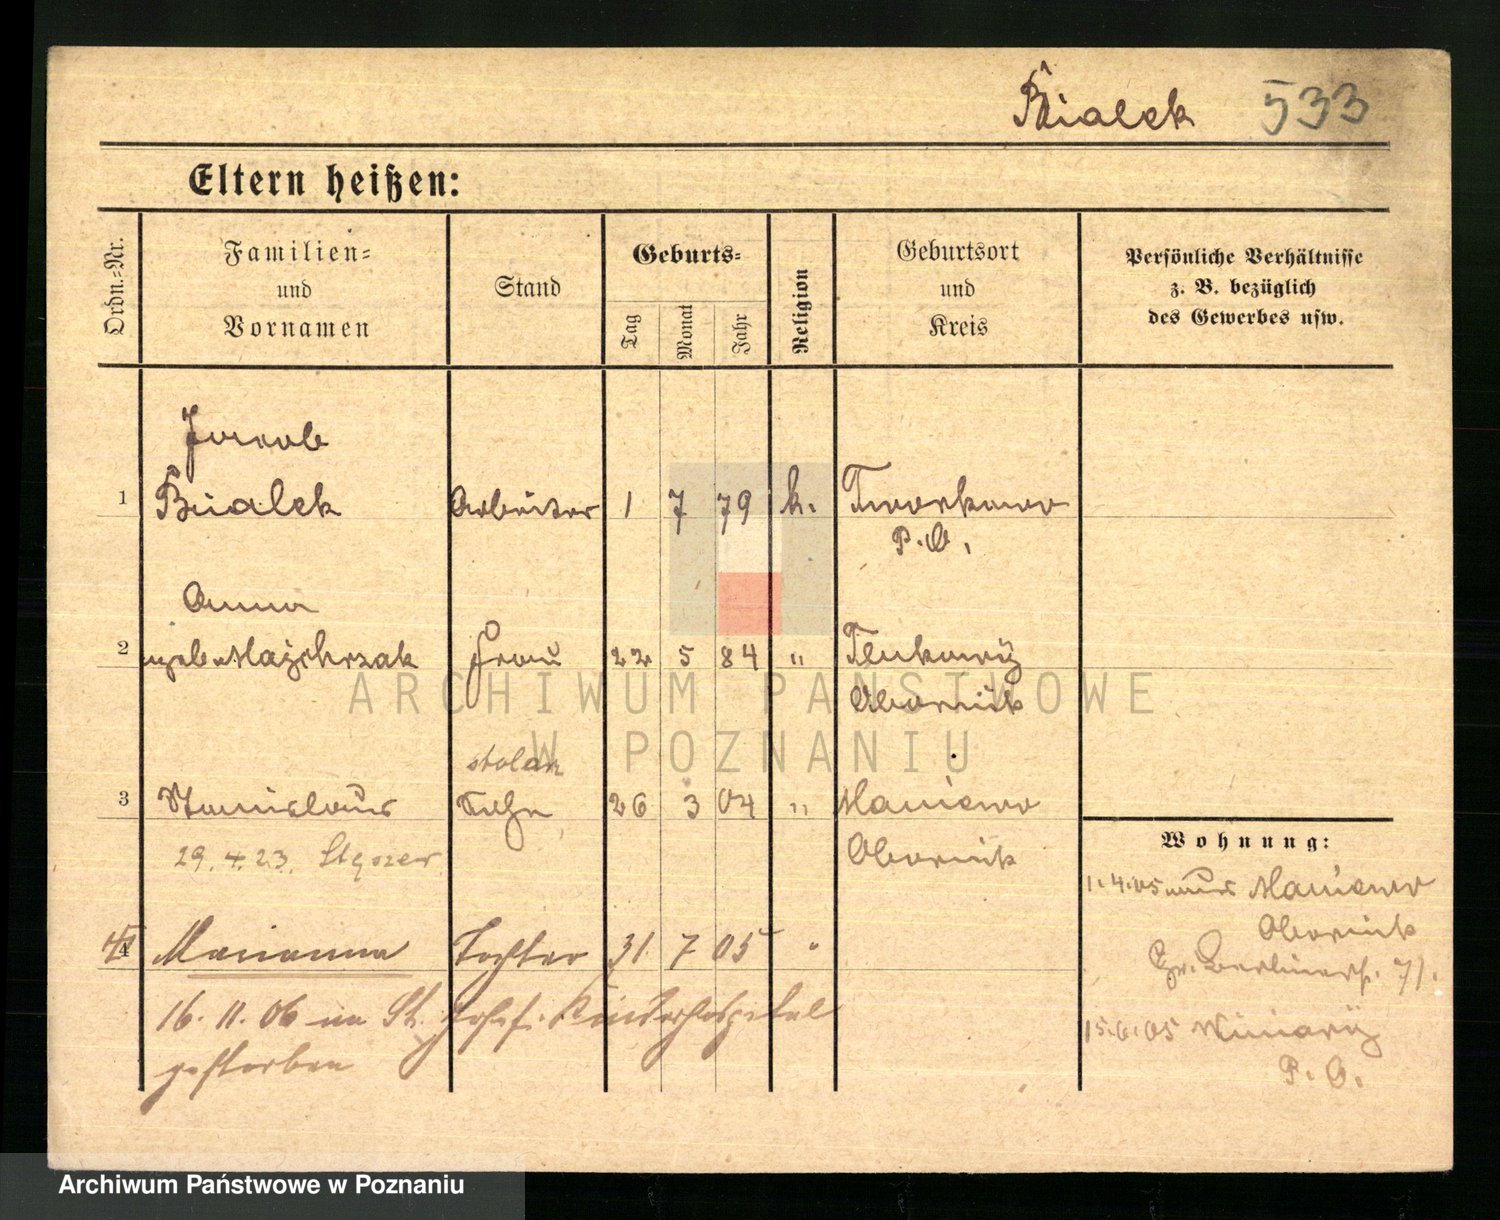 Bialek 533
Eltern heißen:
Ordn.-Nr.
Familien-
und
Vornamen
Stand
Geburts-
Tag
Monat
Jahr
Religion
Geburtsort
und
Kreis
Persönliche Verhältnisse
z. B. bezüglich
des Gewerbes usw.
Jacob
1 Bialek Arbeiter 1 7 79 k. Tworkowo
P. O.
Anna
2 geb. Majchrzak Frau 22 5 84 "
Obornik
stolarz
3 Stanislaus Sohn 26 3 04 " Maniewo
29.4.23. Obornik
4 Marianna Tochter 31 7 05 "
16. 11. 06 im St. Josefs. Kinderhospital
gestorben
Wohnung:
1.4.05 aus Maniewo
Obornik
Gr. Berlinerst. 71.
15.6.05 Winiary
P. O.
ARCHIWUM PAŃSTWOWE
W POZNANIU
Archiwum Państwowe w Poznaniu